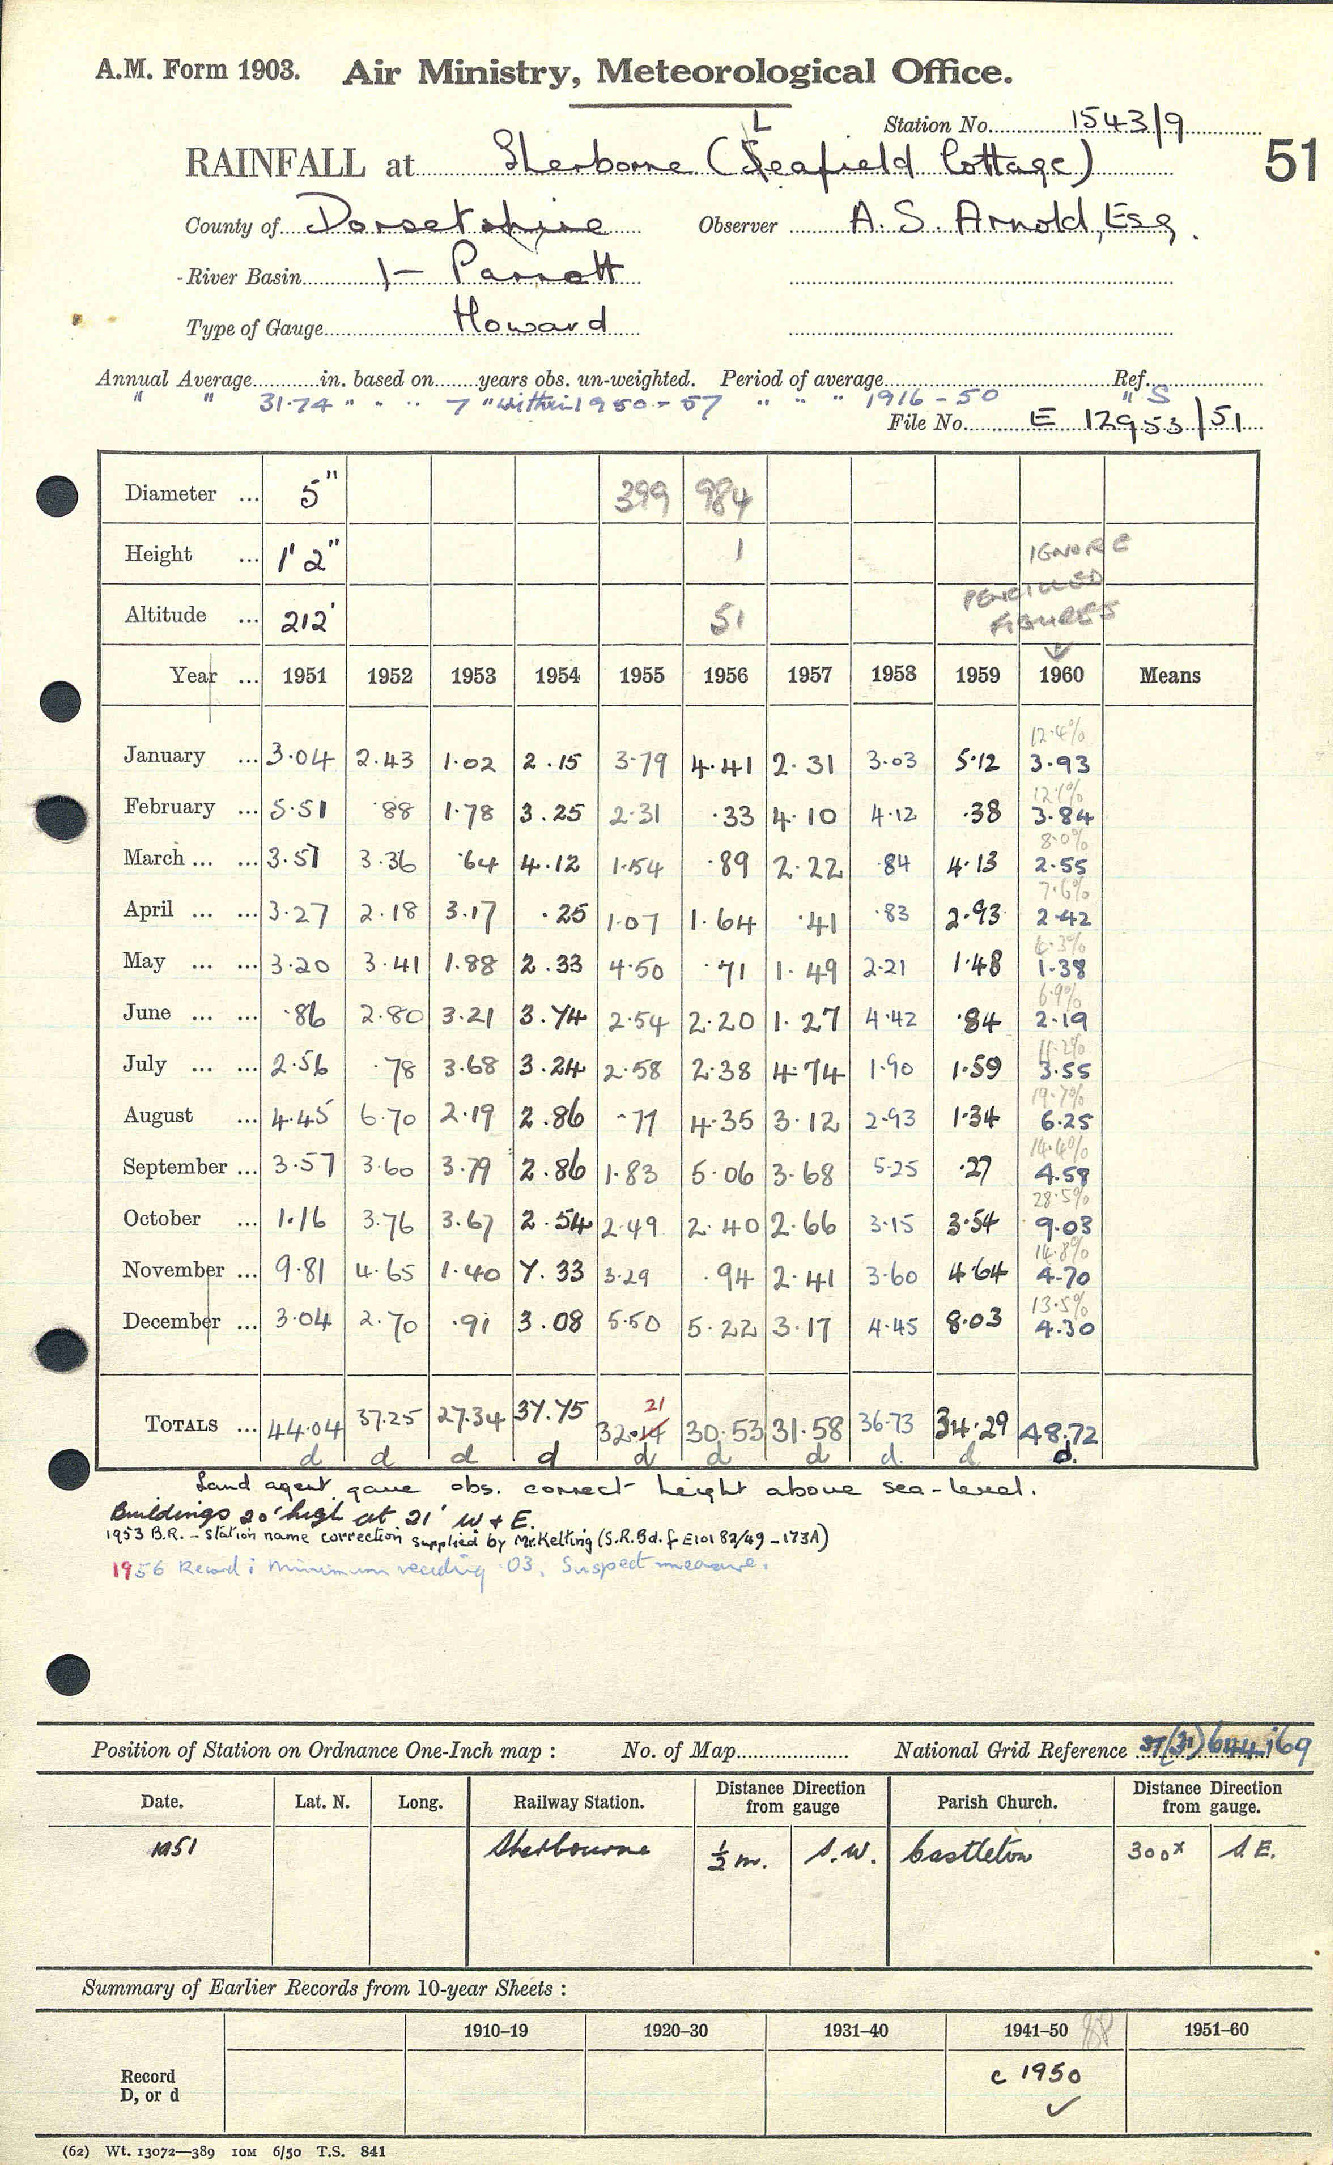 A.M. Form 1903. Air Ministry, Meteorological Office.
Station No. 1543/9
51
L
RAINFALL at Sherborne (Seafield Cottage)
County of Dorsetshire Observer A. S. Arnold, Esq.
River Basin 1- Parrott
Type of Gauge Howard
Annual Average in. based on years obs. un-weighted. Period of average Ref.
" " 31.74 " " " 7 " within 1950-57 " " " 1916-50 " S
File No. E 12953/51
Diameter ... 5" 399 984
Height ... 1' 2" 1 IGNORE
Altitude ... 212' 51 PENCILLED FIGURES
Year ... 1951 1952 1953 1954 1955 1956 1957 1958 1959 1960 Means
12.4%
January ... 3.04 2.43 1.02 2.15 3.79 4.41 2.31 3.03 5.12 3.93
12.1%
February ... 5.51 .88 1.78 3.25 2.31 .33 4.10 4.12 .38 3.84
8.0%
March ... ... 3.57 3.36 .64 4.12 1.54 .89 2.22 .84 4.13 2.55
7.6%
April ... ... 3.27 2.18 3.17 .25 1.07 1.64 .41 .83 2.93 2.42
4.3%
May ... ... 3.20 3.41 1.88 2.33 4.50 .71 1.49 2.21 1.48 1.38
6.9%
June ... ... .86 2.80 3.21 3.74 2.54 2.20 1.27 4.42 .84 2.19
11.2%
July ... ... 2.56 .78 3.68 3.24 2.58 2.38 4.74 1.90 1.59 3.55
19.7%
August ... 4.45 6.70 2.19 2.86 .77 4.35 3.12 2.93 1.34 6.25
14.4%
September ... 3.57 3.60 3.79 2.86 1.83 5.06 3.68 5.25 .27 4.58
28.5%
October ... 1.16 3.76 3.67 2.54 2.49 2.40 2.66 3.15 3.54 9.03
14.8%
November ... 9.81 4.65 1.40 7.33 3.29 .94 2.41 3.60 4.64 4.70
13.5%
December ... 3.04 2.70 .91 3.08 5.50 5.22 3.17 4.45 8.03 4.30
21
TOTALS ... 44.04 37.25 27.34 37.75 32.17 30.53 31.58 36.73 34.29 48.72
d d d d d d d d d d
Land agent gave obs. correct height above sea-level.
Buildings 20' high at 21' W & E.
1953 B.R. - Station name correction supplied by Mr. Kelting (S.R.Bd. f E10182/49 - 173A)
1956 Record: Minimum reading .03. Suspect measure.
Position of Station on Ordnance One-Inch map : No. of Map National Grid Reference 37(31)644169
Date. Lat. N. Long. Railway Station. Distance from gauge Direction Parish Church. Distance from gauge. Direction
1951 Sherbourne ½ m. S.W. Castleton 300x S.E.
Summary of Earlier Records from 10-year Sheets :
1910–19 1920–30 1931–40 1941–50 1951–60
Record D, or d c 1950
✓
(62) Wt. 13072—389 10M 6/50 T.S. 841